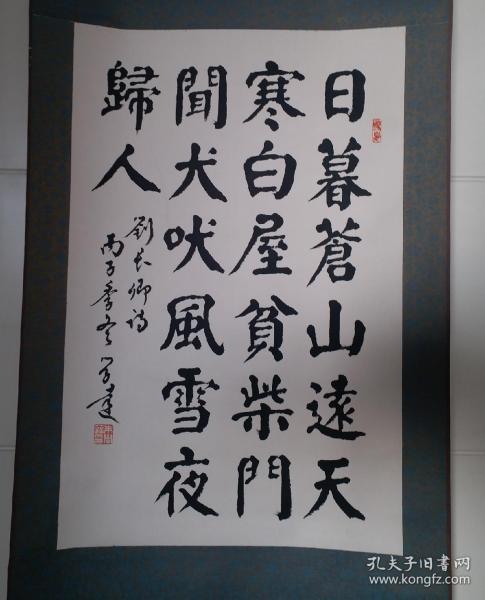 日暮蒼山遠天
寒白屋貧柴門
聞犬吠風雪夜
歸人
劉長卿詩
丙子季冬
孔夫子旧书网
www.kongfz.com